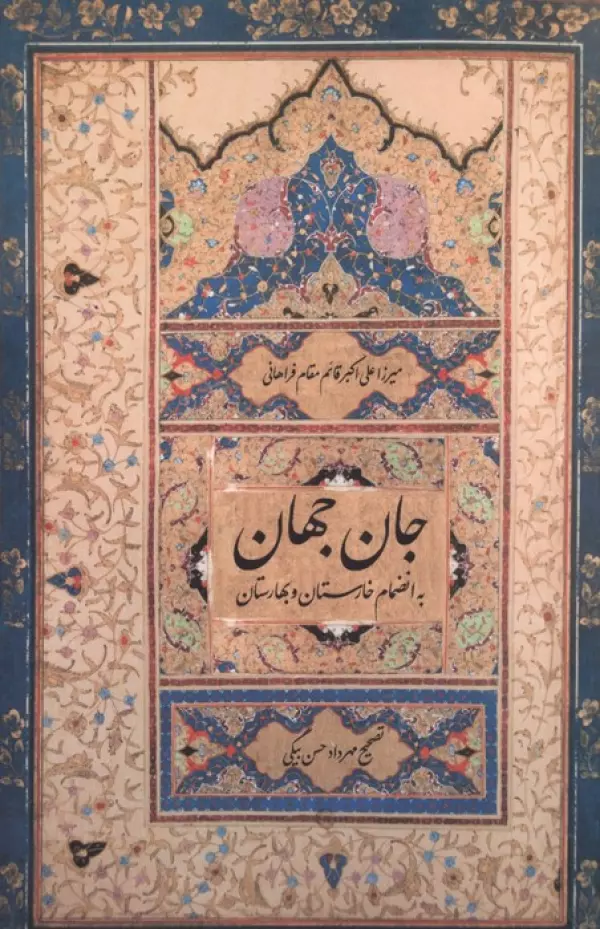 میرزا علی اکبر قائم مقام فراهانی
جان جهان
به انضمام خارستان و بهارستان
تصحیح مهرداد حسن بیگی